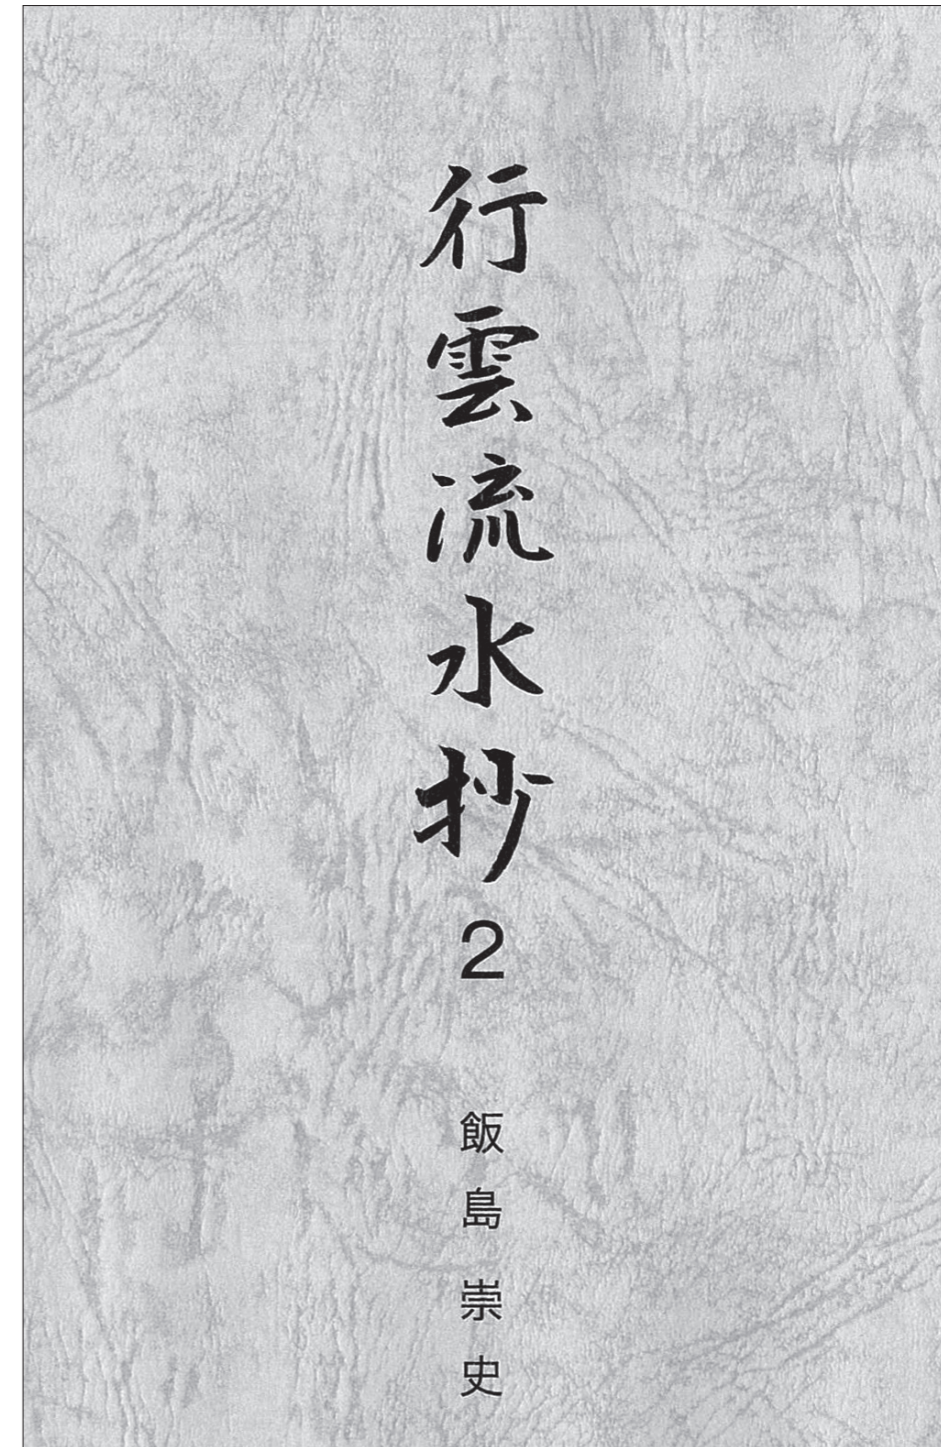 行雲流水抄2
飯島崇史